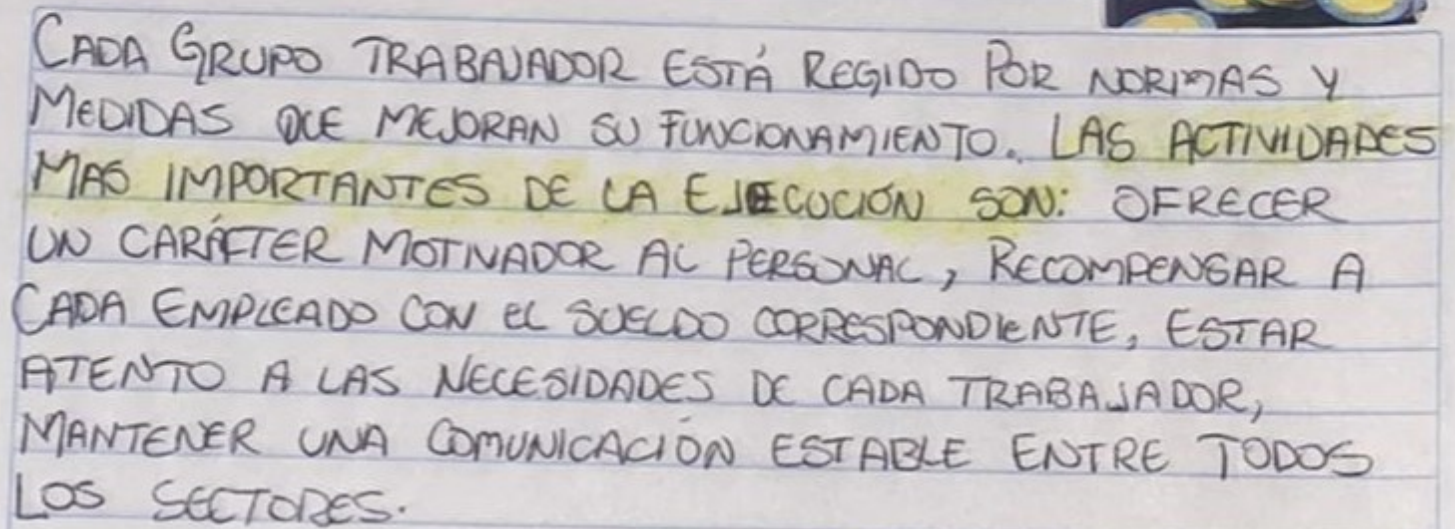 CADA GRUPO TRABAJADOR ESTÁ REGIDO POR NORMAS Y
MEDIDAS QUE MEJORAN SU FUNCIONAMIENTO. LAS ACTIVIDADES
MAS IMPORTANTES DE LA EJECUCIÓN SON: OFRECER
UN CARÁCTER MOTIVADOR AL PERSONAL, RECOMPENSAR A
CADA EMPLEADO CON EL SUELDO CORRESPONDIENTE, ESTAR
ATENTO A LAS NECESIDADES DE CADA TRABAJADOR,
MANTENER UNA COMUNICACIÓN ESTABLE ENTRE TODOS
LOS SECTORES.